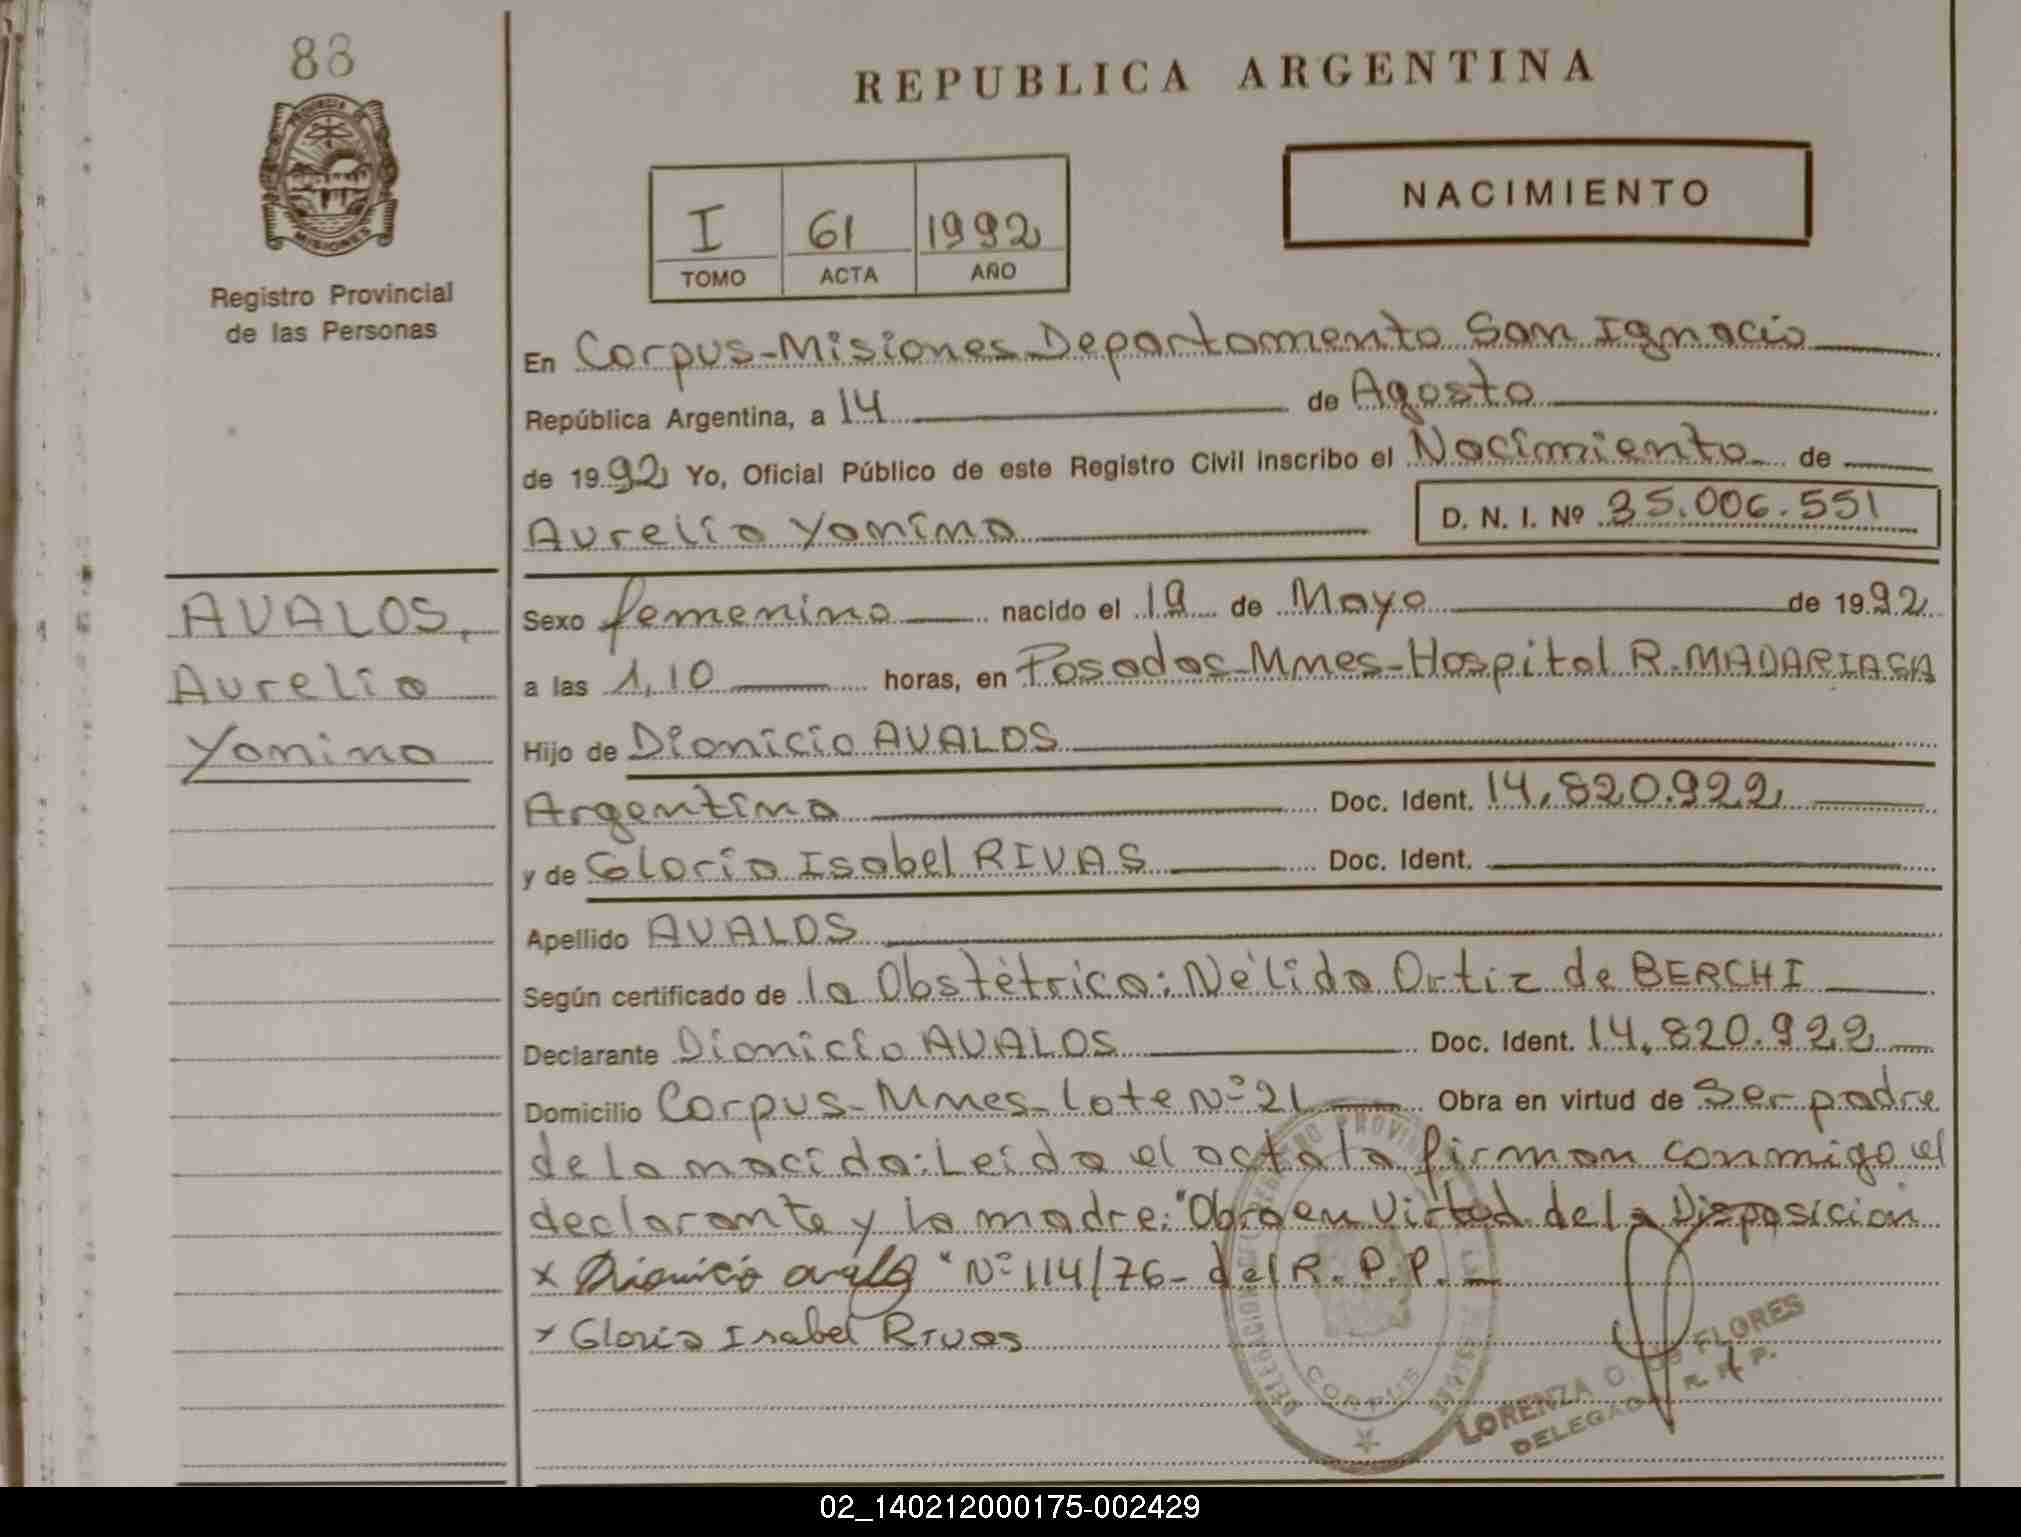 88
REPUBLICA ARGENTINA
PROVINCIA
MISIONES
NACIMIENTO
I 61 1992
TOMO ACTA AÑO
Registro Provincial
de las Personas
En Corpus-Misiones Departamento San Ignacio
República Argentina, a 14 de Agosto
de 1992 Yo, Oficial Público de este Registro Civil inscribo el Nacimiento de
Aurelia Yanina D. N. I. Nº 35.006.551
AVALOS,
Aurelia
Yanina
Sexo femenino nacido el 19 de Mayo de 1992
a las 1,10 horas, en Posadas-Mnes-Hospital R. MADARIAGA
Hijo de Dionicio AVALOS
Argentino Doc. Ident. 14.820.922
y de Gloria Isabel RIVAS Doc. Ident.
Apellido AVALOS
Según certificado de la Obstétrica: Nélida Ortiz de BERCHI
Declarante Dionicio AVALOS Doc. Ident. 14.820.922
Domicilio Corpus-Mnes-Lote Nº 21 Obra en virtud de Ser padre
de la nacida: Leída el acta la firman conmigo el
declarante y la madre: "Obra en Virtud de la Disposición
x Dionicio avalo "Nº 114/76- del R. P. P.
x Gloria Isabel Rivas
CORPUS
LORENZA O. DE FLORES
DELEGADA R. P. P.
02_140212000175-002429